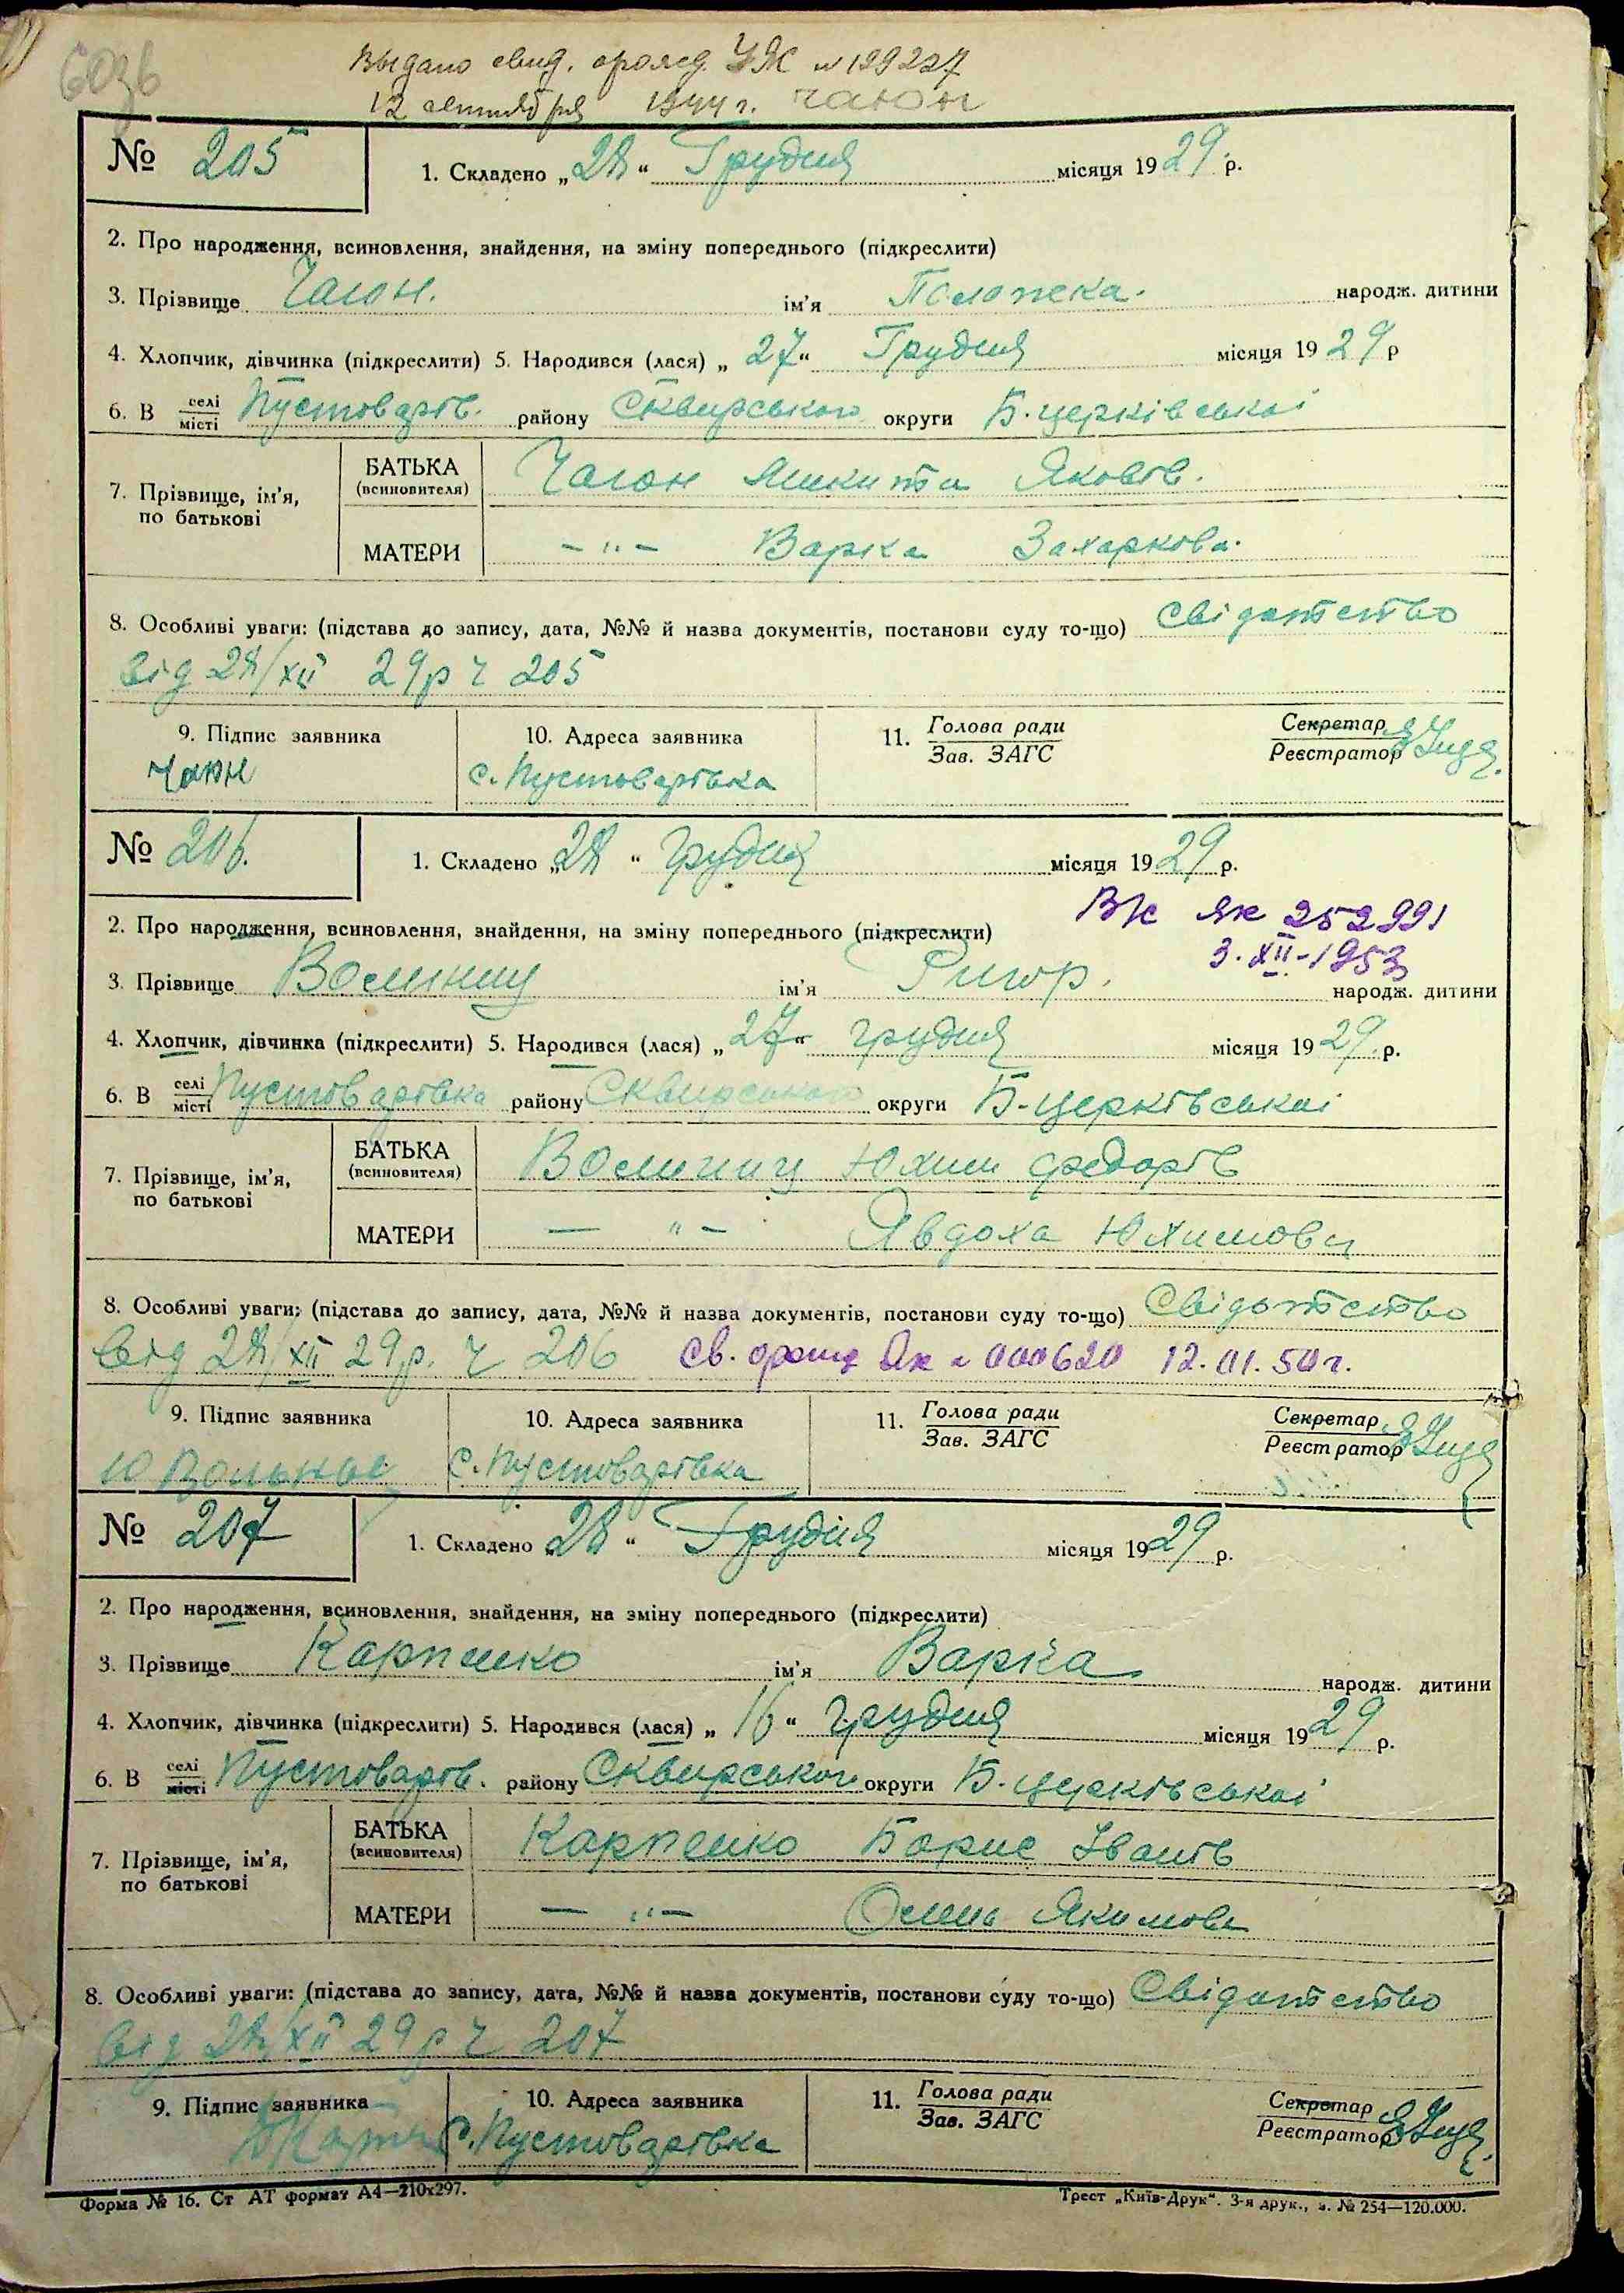 603б
Выдано свид. о рожд. УЖ № 199227
12 сентября 1944 г. чаюн
№ 205
1. Складено „28“ Грудня місяця 1929 р.
2. Про народження, всиновлення, знайдення, на зміну попереднього (підкреслити)
3. Прізвище Чаюн. ім'я Положка. народж. дитини
4. Хлопчик, дівчинка (підкреслити) 5. Народився (лася) „27“ Грудня місяця 1929 р
6. В селі місті Пустоварів. району Сквирського округи Б.церківської
7. Прізвище, ім'я, по батькові
БАТЬКА (всиновителя) Чаюн Микита Яковів.
МАТЕРИ – " – Варка Захаркова.
8. Особливі уваги: (підстава до запису, дата, №№ й назва документів, постанови суду то-що) Свідотство
від 28/XII 29 р ч 205
9. Підпис заявника 10. Адреса заявника 11. Голова ради Зав. ЗАГС Секретар Реєстратор
Чаюн с. Пустоварівка
№ 206.
1. Складено „28“ грудня місяця 1929 р.
ВК ЯК 252991
2. Про народження, всиновлення, знайдення, на зміну попереднього (підкреслити)
3.XII-1953
3. Прізвище Волинец ім'я Ригор. народж. дитини
4. Хлопчик, дівчинка (підкреслити) 5. Народився (лася) „27“ грудня місяця 1929. р.
6. В селі місті Пустоварівка району Сквирського округи Б-церківської
7. Прізвище, ім'я, по батькові
БАТЬКА (всиновителя) Волинец Юхим Федорів
МАТЕРИ – " – Явдоха Юхимова
8. Особливі уваги: (підстава до запису, дата, №№ й назва документів, постанови суду то-що) Свідотство
від 28/XII 29 р. ч 206 Св. о рожд ЯК № 000620 12.01.50 г.
9. Підпис заявника 10. Адреса заявника 11. Голова ради Зав. ЗАГС Секретар Реєстратор
с. Пустоварівка
№ 207
1. Складено „28“ Грудня місяця 1929 р.
2. Про народження, всиновлення, знайдення, на зміну попереднього (підкреслити)
3. Прізвище Карпенко ім'я Варка народж. дитини
4. Хлопчик, дівчинка (підкреслити) 5. Народився (лася) „16“ грудня місяця 1929 р.
6. В селі місті Пустоварів. району Сквирського округи Б.церківської
7. Прізвище, ім'я, по батькові
БАТЬКА (всиновителя) Карпенко Борис Іванів
МАТЕРИ – " – Олена Якимова
8. Особливі уваги: (підстава до запису, дата, №№ й назва документів, постанови суду то-що) Свідотство
від 28/XII 29 р ч 207
9. Підпис заявника 10. Адреса заявника 11. Голова ради Зав. ЗАГС Секретар Реєстратор
с. Пустоварівка
Форма № 16. Ст АТ формат А4—210х297. Трест „Київ-Друк“. 3-я друк., з. № 254—120.000.